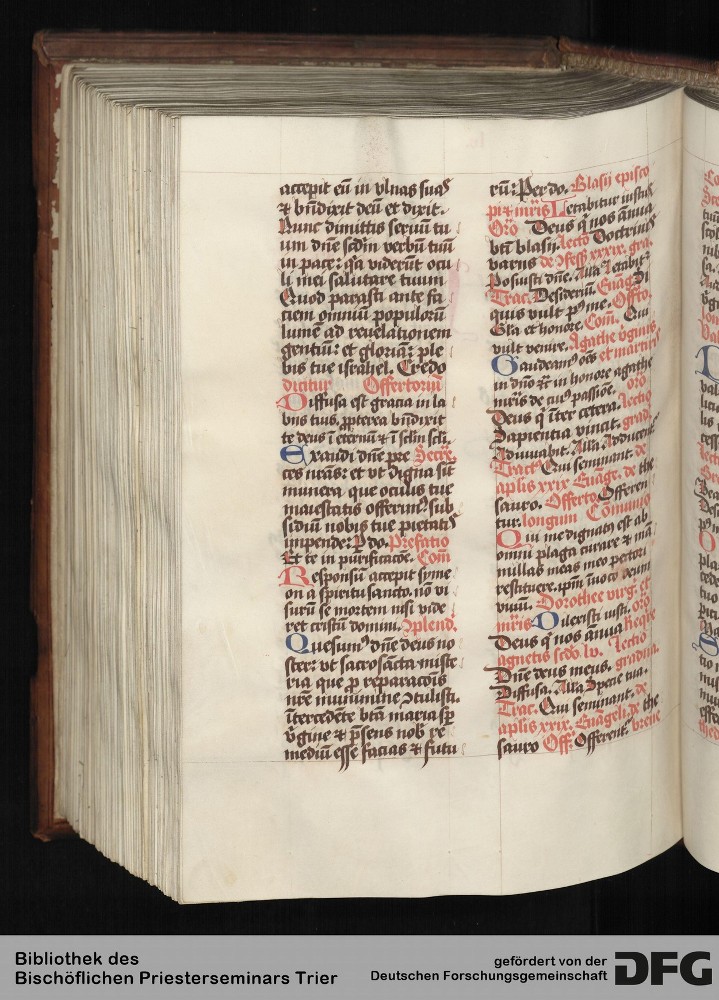 accepit eū in vlnas suas
⁊ bn̄dixit deū et dixit.
Nunc dimittis seruū tu
um dn̄e scd̄m verbū tuū
in pace: q̄a viderūt ocu
li mei salutare tuum
Quod parasti ante fa
ciem omniū populorū
lumē ad reuelationem
gentiū: et gloriaꝫ ple
bis tue israhel. Credo
dicitur Offertoriū
Diffusa est gracia in la
bijs tuis. ꝓpterea bn̄dixit
te deus ī eternū ⁊ ī sc̄lm scl̄i.
Exaudi dn̄e pre Secre.
ces nr̄as: et vt digna sit
munera que oculis tue
maiestatis offerimꝰ sub
sidiū nobis tue pietatis
impende: ꝑ do. Prefatio
Et te in purificacōe. Com̄
Responsū accepit syme
on a spiritu sancto. nō vi
surū se mortem nisi vide
ret cristū domini. 9plend.
Quesumꝰ dn̄e deus no
ster: vt sacrosācta miste
ria que ꝓ reparacōis
nr̄e munimine 9tulisti.
ītercedēte btā maria sp̄
v̄gine et p̄sens nob̄ re
mediū esse facias ⁊ futu
rū: Per do. Blasij episco
pi ⁊ mr̄is Letabitur iustꝰ
Oro Deus q̇ nos ānua
bti blasij. Lectio Doctrinis
varijs de 9fess xxxix. gra.
Posuisti dn̄e. Alla Letabitr
Trac. Desideriū. Euāg. Si
quis vult pꝰ me. Offto.
Glīa et honore. Com̄. Qui
vult venire. Agathe v̄ginis
Gaudeamꝰ oēs et martiris
in dn̄o ⁊c̄ in honore agathe
mr̄is de cuiꝰ passiōe. oro
Deus q̇ īter cetera. Lectio
Sapientia vincit. grad.
Adiuuabit. Alla Adducentr
Tractꝰ Qui seminant. de
aplis xxix Euāge. de the
sauro. Offerto. Offeren
tur. longum Cōmunio
Qui me dignatꝰ est ab
omni plaga curare ⁊ mā
millas meas meo pectori
restituere. ipm̄ īuoco deum
viuū. Dorothee virg. et
mr̄is Dilexisti iusti. oro
Deus q̇ nos ānua Require
agnetis scd̄o. lv. Lectio
Dn̄e deus meus. gradua.
Diffusa. Alla Specie tua.
Trac. Qui seminant. de
aplis xxix. Euāgeli. de the
sauro Off. Offerentr. breue
Bibliothek des
Bischöflichen Priesterseminars Trier
gefördert von der
Deutschen Forschungsgemeinschaft
DFG